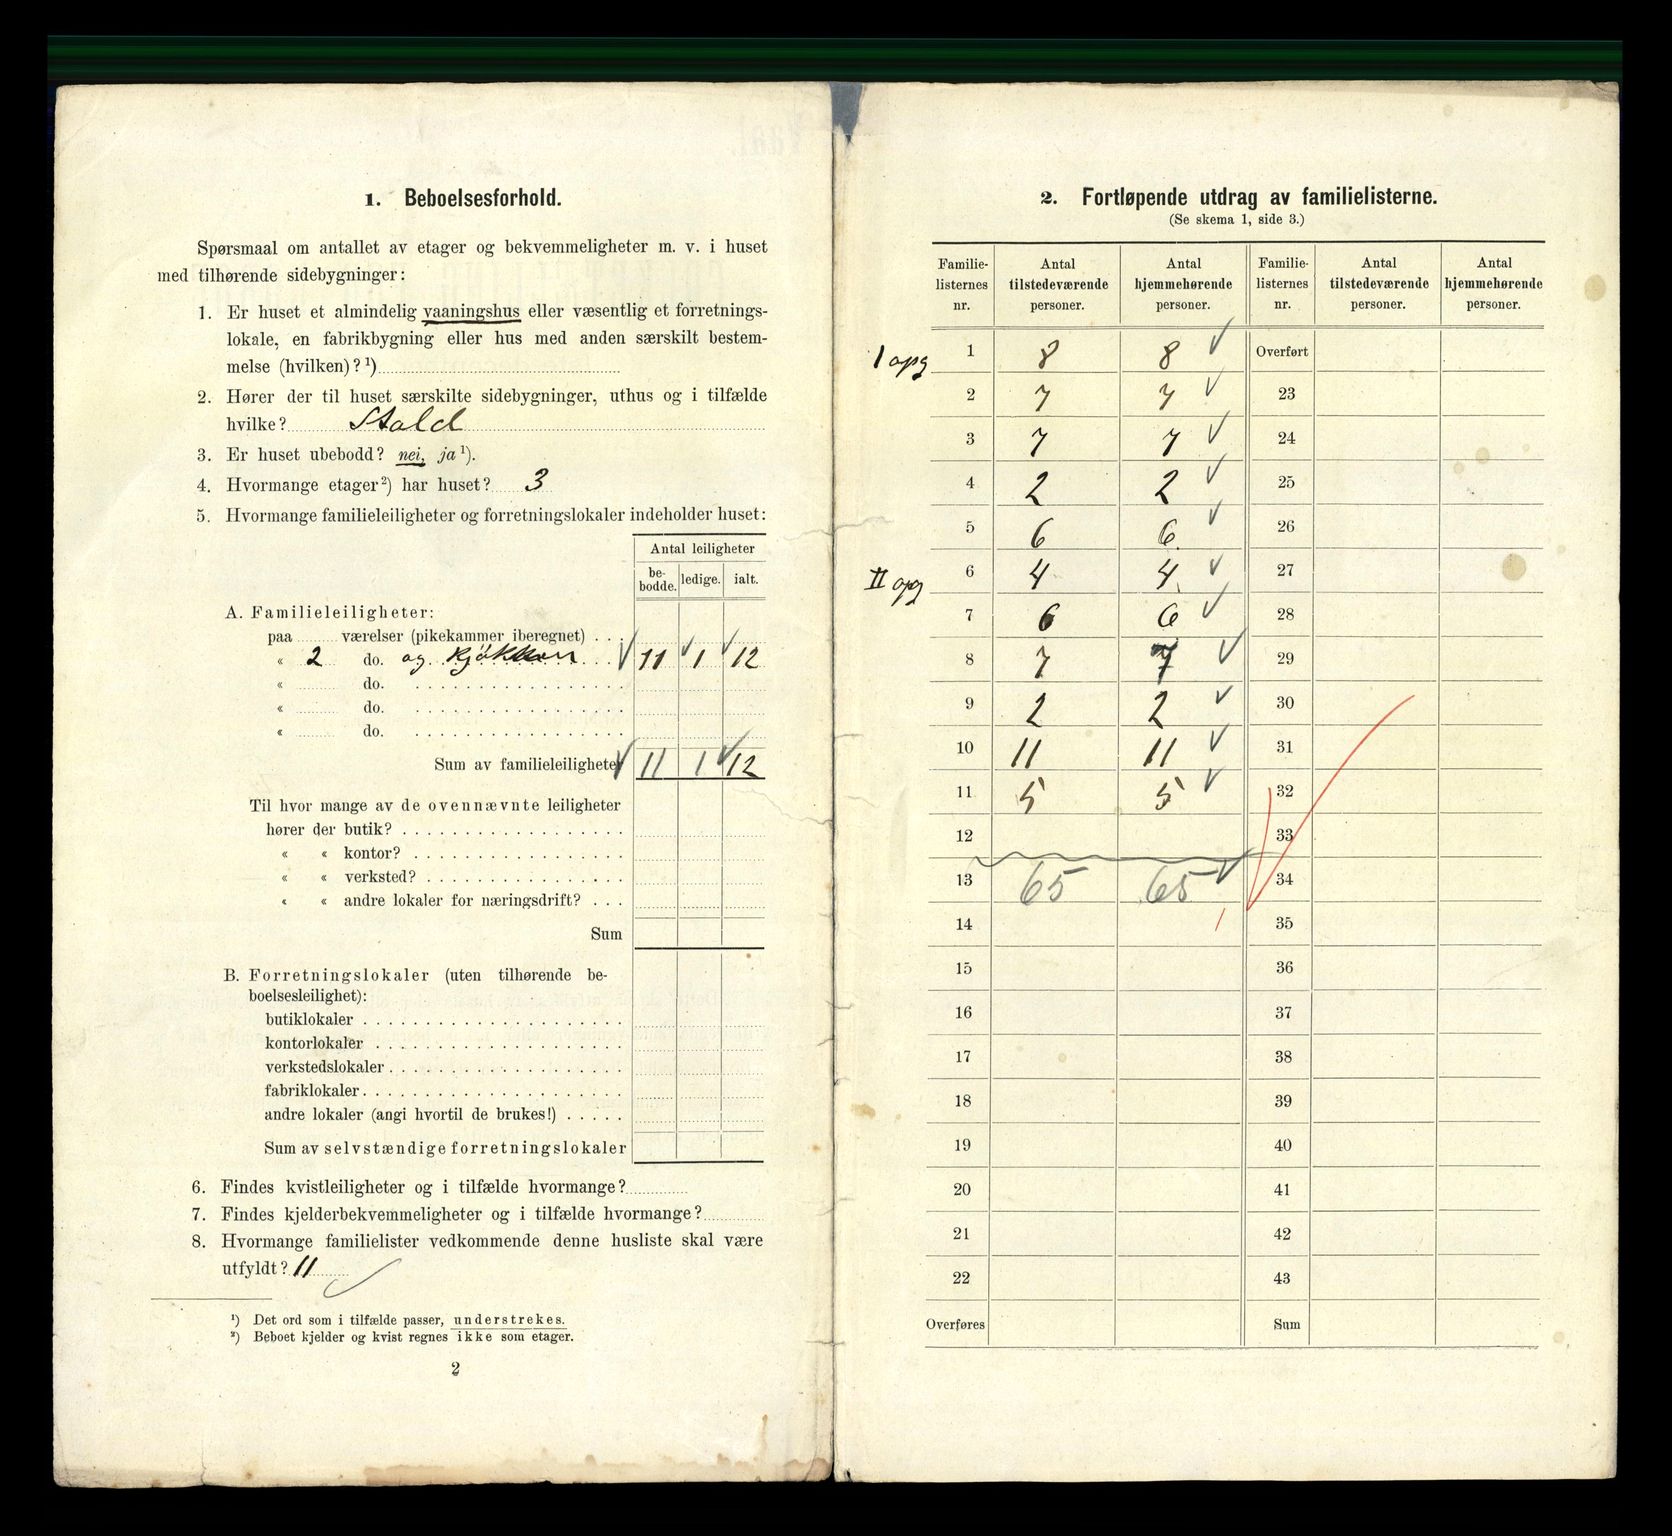 1. Beboelsesforhold.
Spørsmaal om antallet av etager og bekvemmeligheter m. v. i huset
med tilhørende sidebygninger:
1. Er huset et almindelig vaaningshus eller væsentlig et forretnings-
lokale, en fabrikbygning eller hus med anden særskilt bestem-
melse (hvilken)? ¹)
2. Hører der til huset særskilte sidebygninger, uthus og i tilfælde
hvilke? Stald
3. Er huset ubebodd? nei, ja ¹).
4. Hvormange etager ²) har huset? 3
5. Hvormange familieleiligheter og forretningslokaler indeholder huset:
Antal leiligheter
be-bodde. ledige. ialt.
A. Familieleiligheter:
paa værelser (pikekammer iberegnet) . . .
« 2 do. og kjøkken . . √ 11 √ 1 √ 12
« do. . . . . . . . . . . . . . . . . .
« do. . . . . . . . . . . . . . . . . .
« do. . . . . . . . . . . . . . . . . .
Sum av familieleiligheter √ 11 1 √ 12
Til hvor mange av de ovennævnte leiligheter
hører der butik? . . . . . . . . . . . . . . . . . .
« « kontor? . . . . . . . . . . . . . . . . .
« « verksted? . . . . . . . . . . . . . . . .
« « andre lokaler for næringsdrift? . . .
Sum
B. Forretningslokaler (uten tilhørende be-
boelsesleilighet):
butiklokaler . . . . . . . . . . . . . . . . . . . . .
kontorlokaler . . . . . . . . . . . . . . . . . . . .
verkstedslokaler . . . . . . . . . . . . . . . . . . .
fabriklokaler . . . . . . . . . . . . . . . . . . . . .
andre lokaler (angi hvortil de brukes!) . . . . .
Sum av selvstændige forretningslokaler
6. Findes kvistleiligheter og i tilfælde hvormange?
7. Findes kjelderbekvemmeligheter og i tilfælde hvormange?
8. Hvormange familielister vedkommende denne husliste skal være
utfyldt? 11
¹) Det ord som i tilfælde passer, understrekes.
²) Beboet kjelder og kvist regnes ikke som etager.
2
2. Fortløpende utdrag av familielisterne.
(Se skema 1, side 3.)
Familie- Antal Antal Familie- Antal Antal
listernes tilstedeværende hjemmehørende listernes tilstedeværende hjemmehørende
nr. personer. personer. nr. personer. personer.
I opg 1 8 8 √ Overført
2 7 7 √ 23
3 7 7 √ 24
4 2 2 √ 25
5 6 6 √ 26
II opg 6 4 4 √ 27
7 6 6 √ 28
8 7 7 √ 29
9 2 2 √ 30
10 11 11 √ 31
11 5 5 √ 32
12 33
13 65 65 √ 34
14 35
15 36
16 37
17 38
18 39
19 40
20 41
21 42
22 43
Overføres Sum